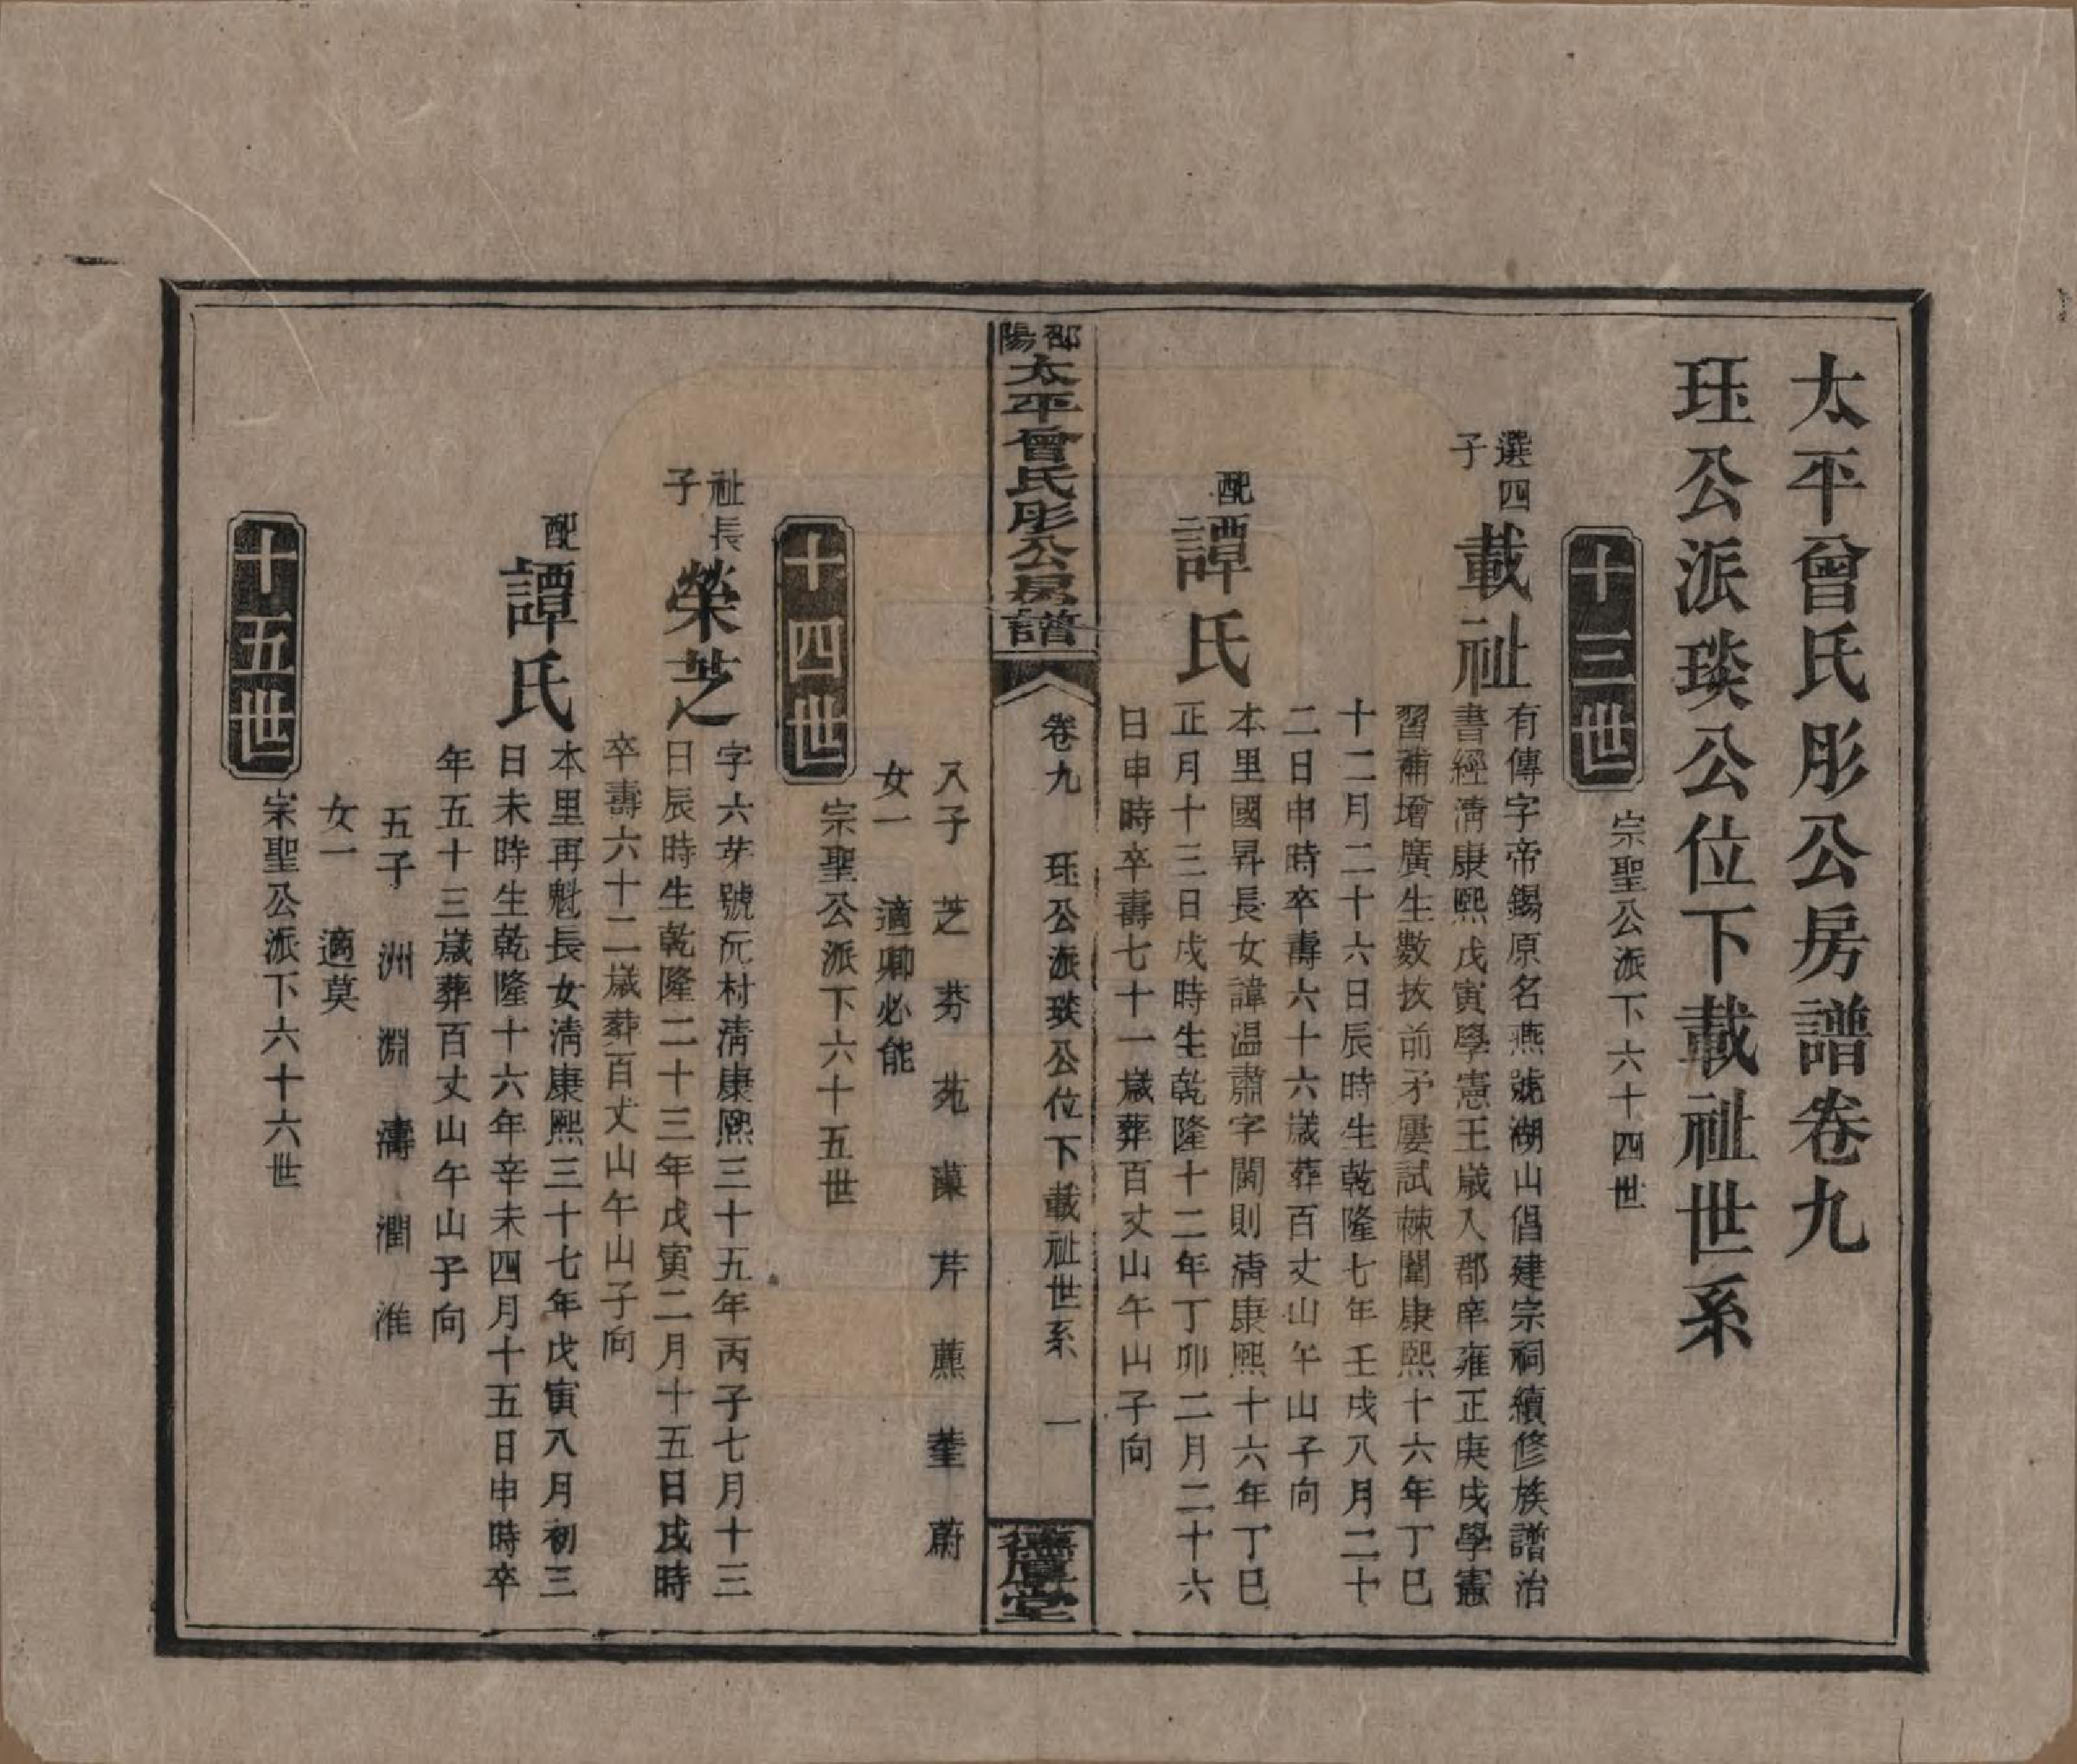 太平曾氏彤公房譜卷九
珏公派琰公位下載祉世系
十三世
宗聖公派下六十四世
選四子
載祉
有傳字帝錫原名燕號湖山倡建宗祠續修族譜治
書經清康熙戊寅學憲王歲入郡庠雍正庚戌學憲
習補增廣生數拔前矛屢試棘闈康熙十六年丁巳
十二月二十六日辰時生乾隆七年壬戌八月二十
二日申時卒壽六十六歲葬百丈山午山子向
配
譚氏
本里國昇長女諱温肅字閫則清康熙十六年丁巳
正月十三日戌時生乾隆十二年丁卯二月二十六
日申時卒壽七十一歲葬百丈山午山子向
邵陽
太平曾氏彤公房譜
卷九 珏公派琰公位下載祉世系 一
德厚堂
八子 芝 芬 苑 藻 芹 薰 荃 蔚
女一 適卿必能
十四世
宗聖公派下六十五世
祉長子
榮芝
字六芽號沅村清康熙三十五年丙子七月十三
日辰時生乾隆二十三年戊寅二月十五日戌時
卒壽六十二歲葬百丈山午山子向
配
譚氏
本里再魁長女清康熙三十七年戊寅八月初三
日未時生乾隆十六年辛未四月十五日申時卒
年五十三歲葬百丈山午山子向
五子 洲 淵 濤 潤 淮
女一 適莫
十五世
宗聖公派下六十六世